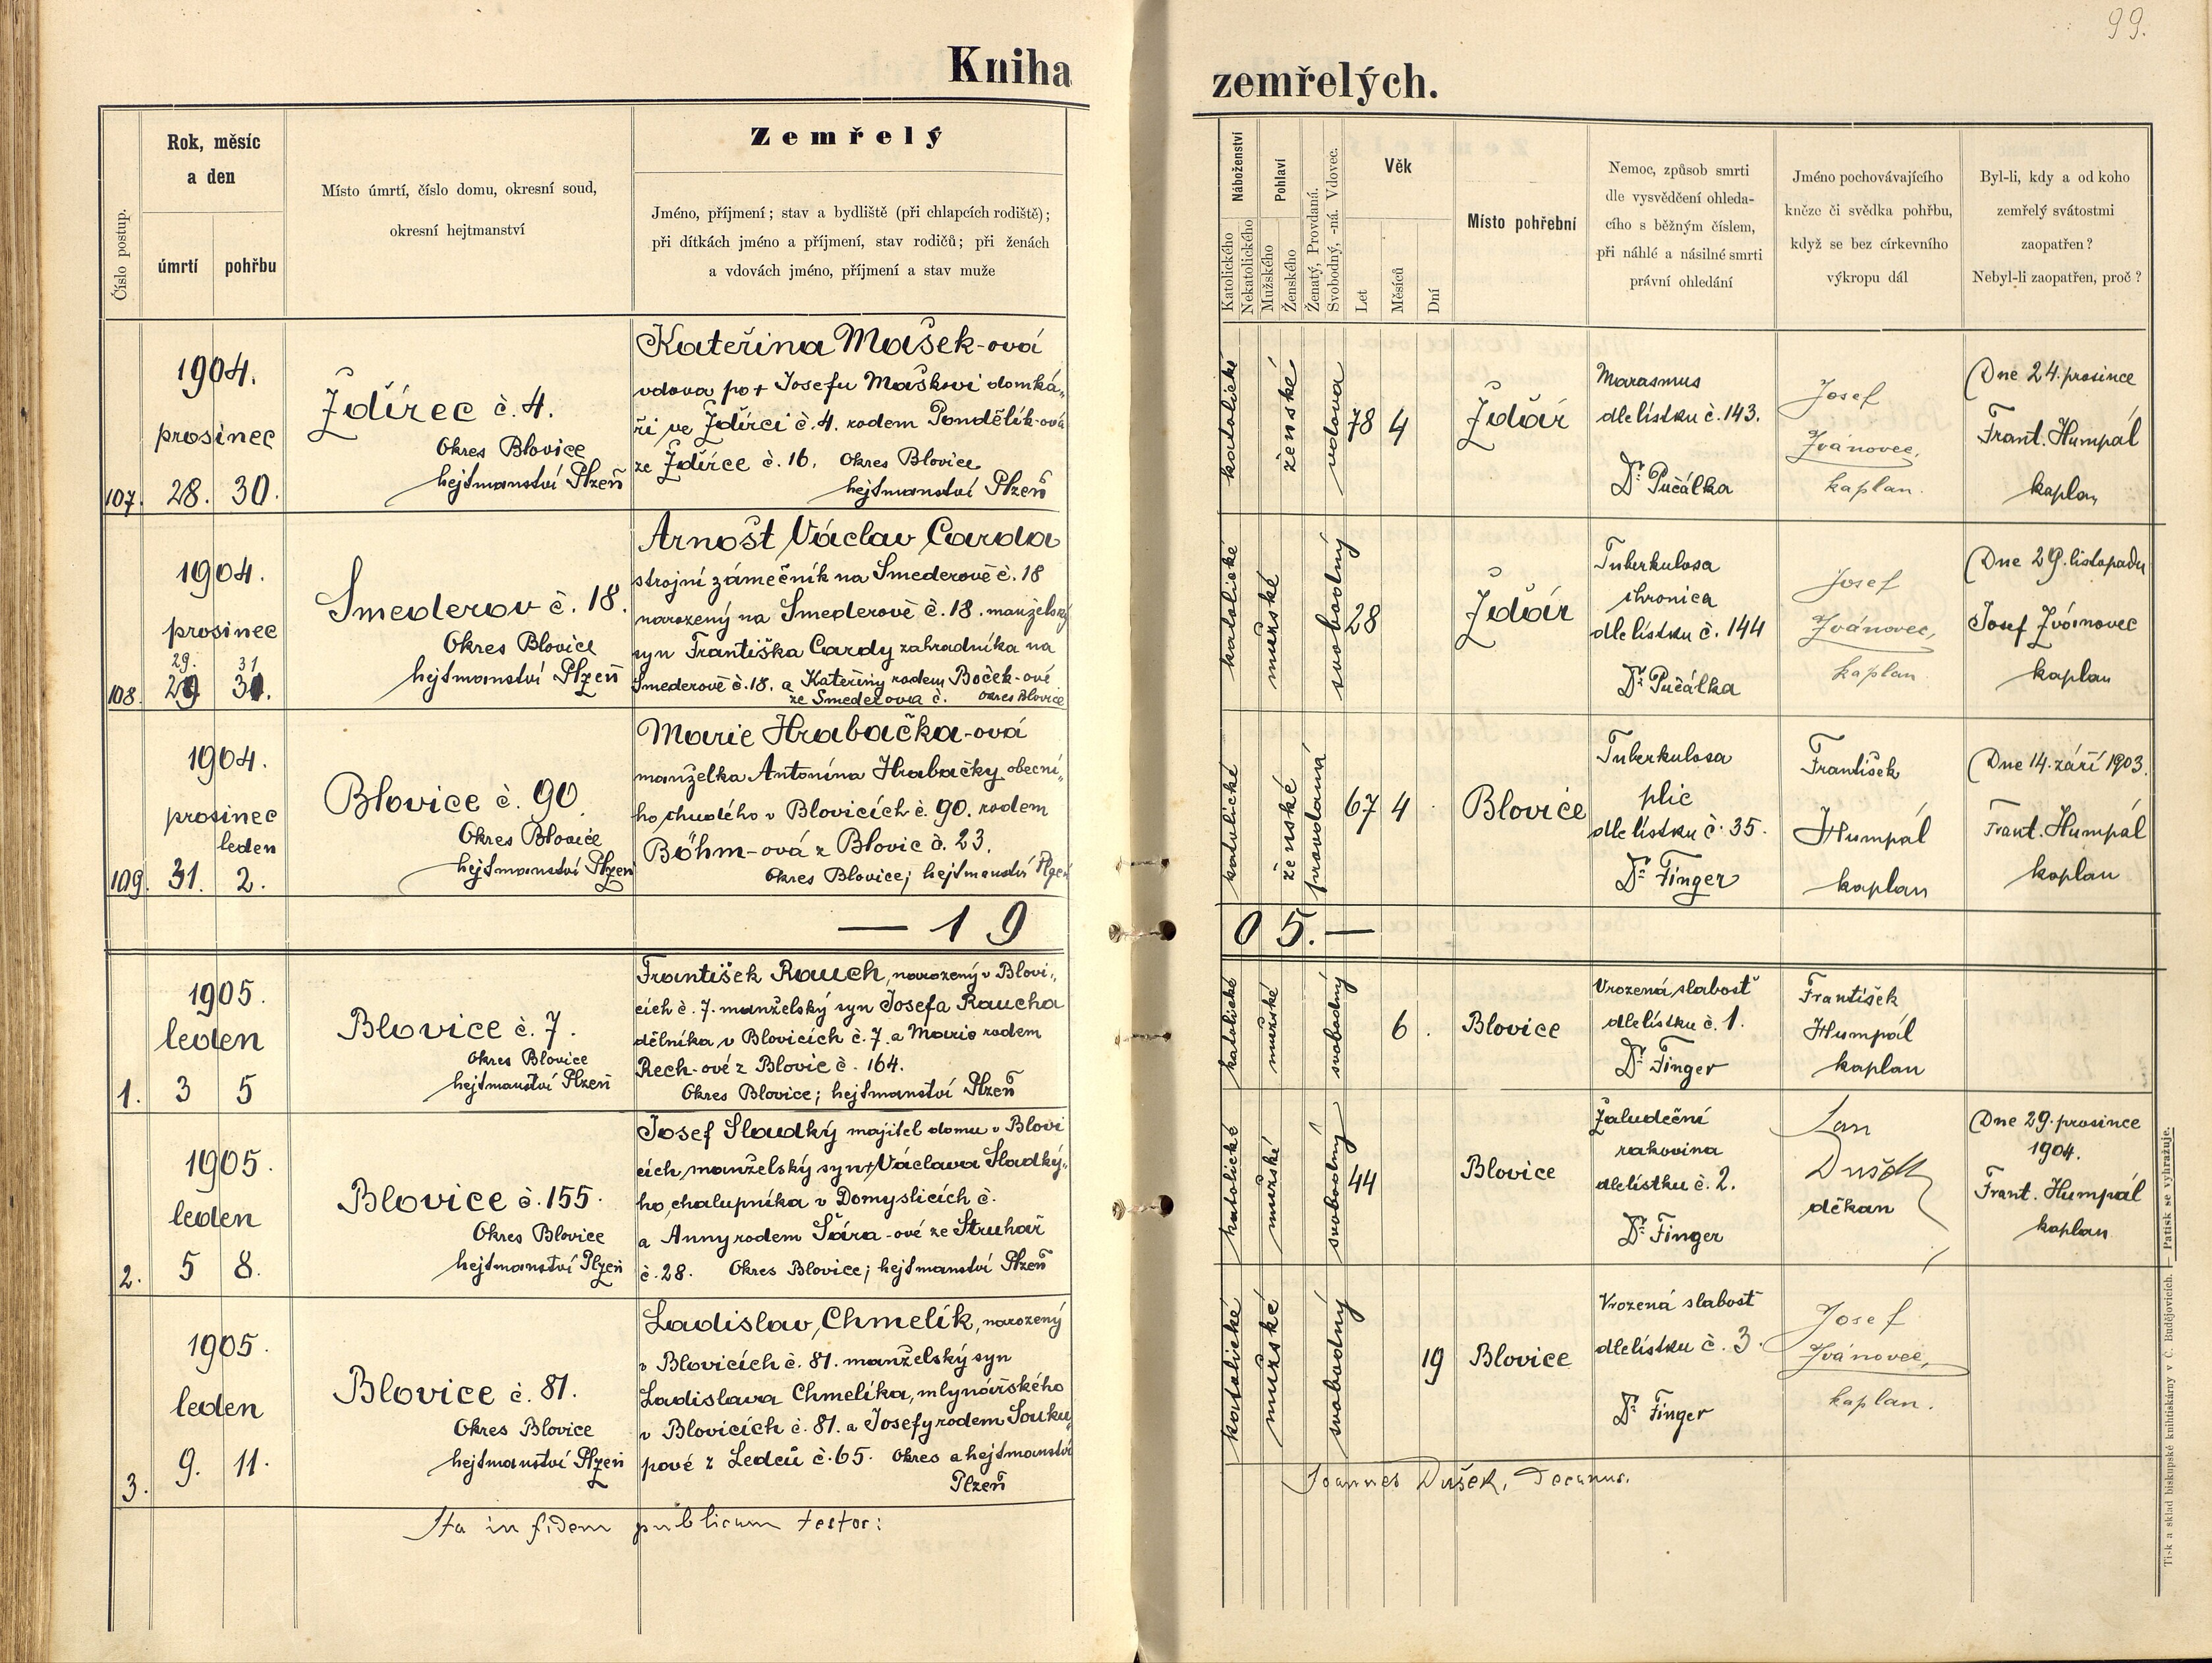 99.
Kniha zemřelých.
Číslo postup.
Rok, měsíc
a den
úmrtí
pohřbu
Místo úmrtí, číslo domu, okresní soud,
okresní hejtmanství
Zemřelý
Jméno, příjmení; stav a bydliště (při chlapcích rodiště);
při dítkách jméno a příjmení, stav rodičů; při ženách
a vdovách jméno, příjmení a stav muže
Náboženství
Katolického
Nekatolického
Pohlaví
Mužského
Ženského
Ženatý, Provdaná.
Svobodný, -ná. Vdovec.
Věk
Let
Měsíců
Dní
Místo pohřební
Nemoc, způsob smrti
dle vysvědčení ohleda-
cího s běžným číslem,
při náhlé a násilné smrti
právní ohledání
Jméno pochovávajícího
kněze či svědka pohřbu,
když se bez církevního
výkropu dál
Byl-li, kdy a od koho
zemřelý svátostmi
zaopatřen?
Nebyl-li zaopatřen, proč?
107.
1904.
prosinec
28. 30.
Ždírec č. 4.
Okres Blovice
hejtmanství Plzeň
Kateřina Mašek-ová
vdova po † Josefu Maškovi domká„
ři ve Ždírci č. 4. rodem Pondělík-ová
ze Ždírce č. 16. Okres Blovice
hejtmanství Plzeň
katolické
ženské
vdova
78 4
Ždár
Marasmus
dle lístku č. 143.
Dr. Pučálka
Josef
Ivánovec,
kaplan.
Dne 24. prosince
Frant. Humpál
kaplan
108.
1904.
prosinec
29. 31
29 31.
Smederov č. 18.
Okres Blovice
hejtmanství Plzeň
Arnošt Václav Carda
strojní zámečník na Smederově č. 18
narozený na Smederově č. 18. manželský
syn Františka Cardy zahradníka na
Smederově č. 18. a Kateřiny rodem Boček-ové
ze Smederova č. okres Blovice
katolické
mužské
svobodný
28
Ždár
Tuberkulosa
chronica
dle lístku č. 144
Dr. Pučálka
Josef
Ivánovec,
kaplan
Dne 29. listopadu
Josef Ivánovec
kaplan
109.
1904.
prosinec
leden
31. 2.
Blovice č. 90
Okres Blovice
hejtmanství Plzeň
Marie Hrabačka-ová
manželka Antonína Hrabačky obecní„
ho chudého v Blovicích č. 90. rodem
Böhm-ová z Blovic č. 23.
Okres Blovice; hejtmanství Plzeň
katolické
ženské
provdaná
67 4
Blovice
Tuberkulosa
plic
dle lístku č. 35.
Dr. Finger
František
Humpál
kaplan
Dne 14. září 1903.
Frant. Humpál
kaplan
— 19 05. —
1.
1905.
leden
3 5
Blovice č. 7.
Okres Blovice
hejtmanství Plzeň
František Rauch, narozený v Blovi„
cích č. 7. manželský syn Josefa Raucha
dělníka v Blovicích č. 7. a Marie rodem
Rech-ové z Blovic č. 164.
Okres Blovice; hejtmanství Plzeň
katolické
mužské
svobodný
6.
Blovice
Vrozená slabosť
dle lístku č. 1.
Dr. Finger
František
Humpál
kaplan
2.
1905.
leden
5 8.
Blovice č. 155.
Okres Blovice
hejtmanství Plzeň
Josef Sladký majitel domu v Blovi
cích, manželský syn † Václava Sladký„
ho, chalupníka v Domyslicích č.
a Anny rodem Šára-ové ze Struhař
č. 28. Okres Blovice; hejtmanství Plzeň
katolické
mužské
svobodný
44
Blovice
Žaludeční
rakovina
dle lístku č. 2.
Dr. Finger
Jan
Dušek
děkan
Dne 29. prosince
1904.
Frant. Humpál
kaplan
3.
1905.
leden
9. 11.
Blovice č. 81.
Okres Blovice
hejtmanství Plzeň
Ladislav, Chmelík, narozený
v Blovicích č. 81. manželský syn
Ladislava Chmelíka, mlynářského
v Blovicích č. 81. a Josefy rodem Souku„
pové z Ledců č. 65. Okres a hejtmanství
Plzeň
katolické
mužské
svobodný
19
Blovice
Vrozená slabosť
dle lístku č. 3.
Dr. Finger
Josef
Ivánovec,
kaplan.
Ita in fidem publicam testor:
Joannes Dušek, Decanus.
Tisk a sklad biskupské knihtiskárny v Č. Budějovicích. — Patisk se vyhražuje.